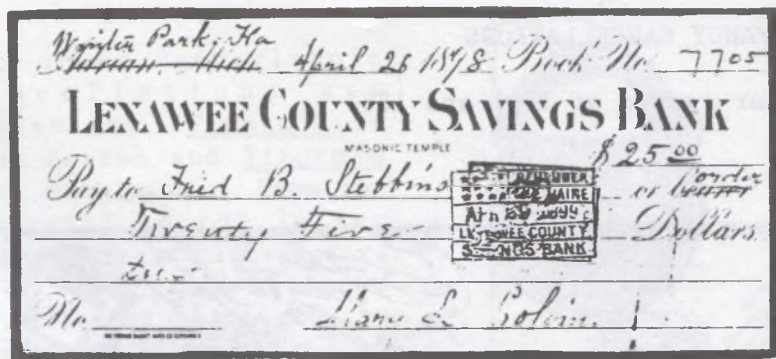 Winter Park, Fla
Adrian, Mich. April 26 1898 Book No 7705
LENAWEE COUNTY SAVINGS BANK
MASONIC TEMPLE
$ 25.00
Pay to Fred B. Stebbins or bearer order
Twenty Five Dollars
APR 1899
LENAWEE COUNTY
SAVINGS BANK
No. L. Colvin